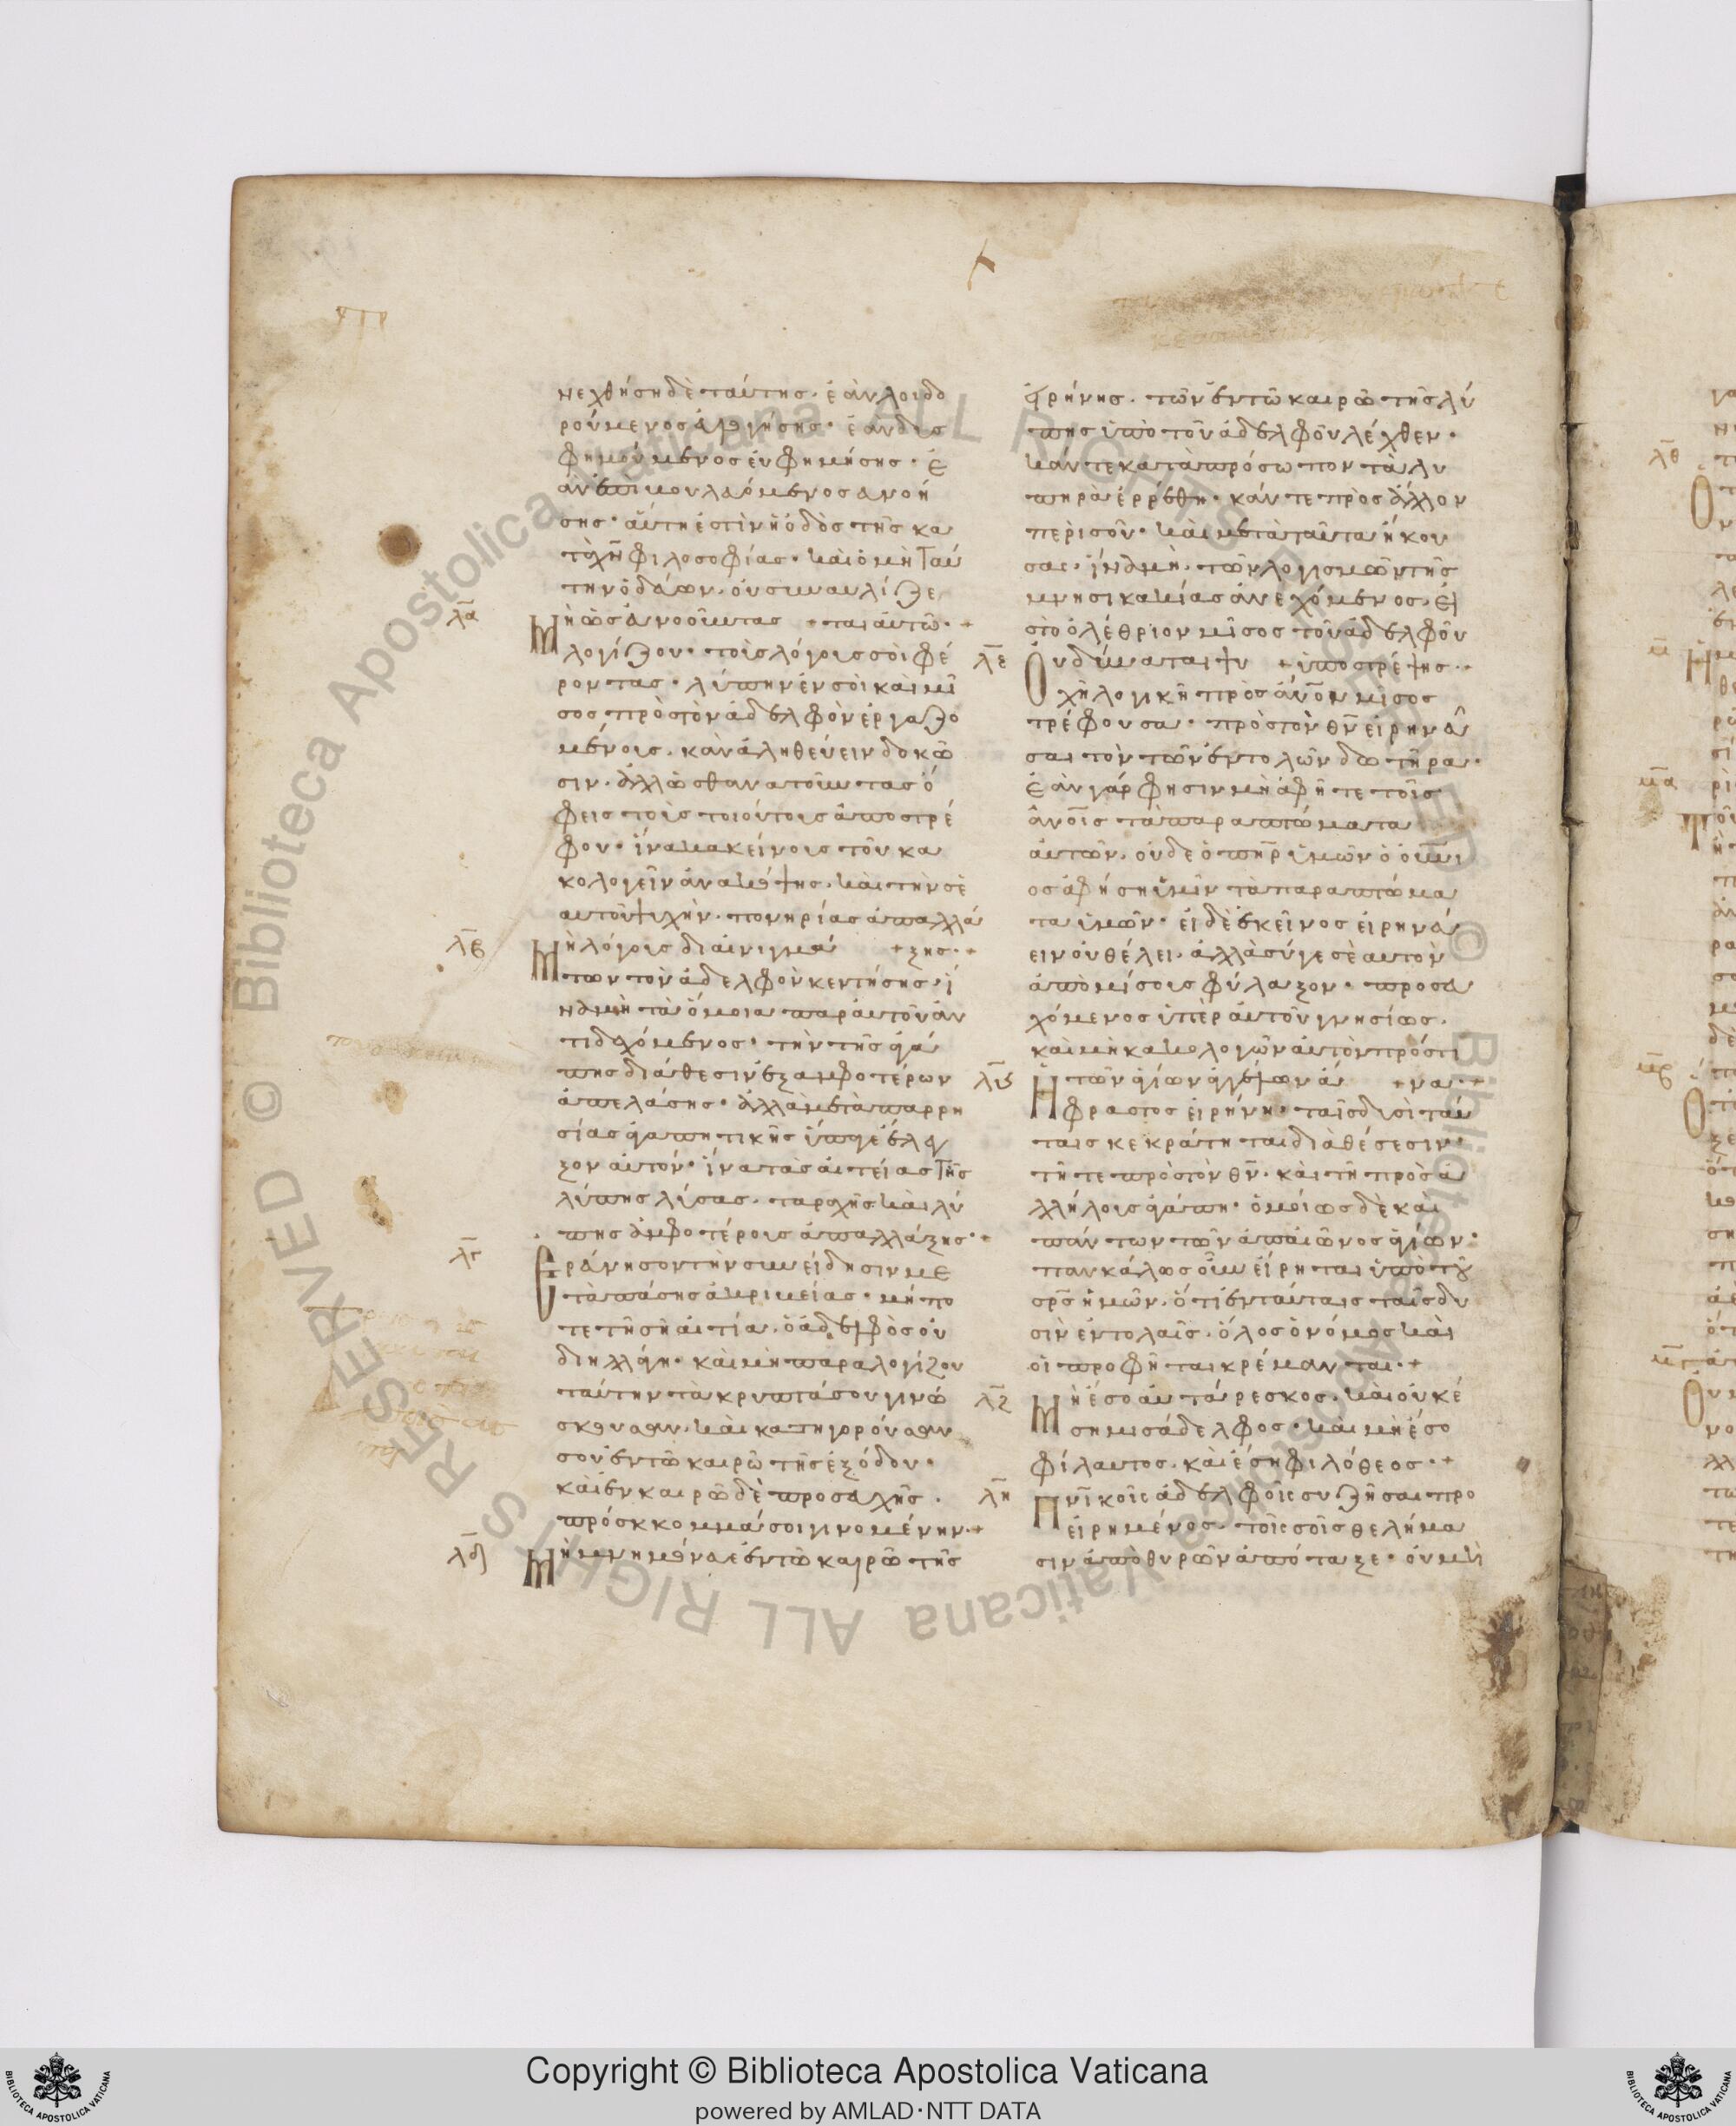 νεχθήση δὲ ταύτης· ἐὰν λοιδο
ρούμενος εὐλογήσης· ἐὰν δυσ
φημούμενος εὐφημήσης· ἐ
ὰν ἐπιβουλευόμενος εὐνοή
σης· αὕτη ἐστὶν ἡ ὁδὸς τῆς κα
τὰ χν φιλοσοφίας· καὶ ὁ μὴ ταύ
την ὁδεύων, οὐ συναυλίζε
λα Μὴ ὡς εὐνοοῦντας + ται αὐτῶ· +
λογίζου· τοὺς λόγους σοι φέ
ροντας· λύπην ἐν σοὶ καὶ μῖ
σος πρὸς τὸν ἀδελφὸν ἐργαζο
μένους, κἂν ἀληθεύειν δοκῶ
σιν· ἀλλ' ὡς θανατοῦντας ὄ
φεις τοὺς τοιούτους ἀποστρέ
φου· ἵνα κακείνους τοῦ κα
κολογεῖν ἀνακόψης, καὶ τὴν σε
αυτοῦ ψυχὴν, πονηρίας ἀπαλλά
λβ Μὴ λόγοις δι' αἰνιγμά + ξης· +
των τὸν ἀδελφὸν κεντήσης· ἵ
να μὴ τὰ ὅμοια παρ' αὐτοῦ ἀν
τιδεχόμενος· τὴν τῆς ἀγά
πης διάθεσιν ἐξ ἀμφοτέρων
ἀπελάσης· ἀλλὰ μετὰ παρρη
σίας ἀγαπητικῆς ὕπαγε ἔλεγ
ξον αὐτόν· ἵνα τὰς αἰτείας τῆς
λύπης λύσας, ταραχῆς καὶ λύ
πης ἀμφοτέρους ἀπαλλάξης· +
λγ Ἐρεύνησον τὴν συνείδησιν με
τὰ πάσης ἀκριβείας· μή πο
τε τῆ σῆ αἰτία, ὁ ἀδελφὸς οὐ
διηλλάγη· καὶ μὴ παραλογίζου
ταύτην τὰ κρυπτά σου γινώ
σκουσαν, καὶ κατηγοροῦσαν
σου ἐν τῶ καιρῶ τῆς ἐξόδου·
καὶ ἐν καιρῶ δὲ προσευχῆς,
πρόσκομμά σοι γινομένην· +
λδ Μὴ μνημόνευε ἐν τῶ καιρῶ τῆς
εἰρήνης, τῶν ἐν τῶ καιρῶ τῆς λύ
πης ὑπὸ τοῦ ἀδελφοῦ λεχθέν·
κάν τε κατὰ πρόσωπον τὰ λυ
πηρὰ ἐρρέθη· κάν τε πρὸς ἄλλον
περὶ σοῦ· καὶ μετὰ ταῦτα ἤκου
σας· ἵνα μὴ, τῶν λογισμῶν τῆς
μνησικακίας ἀνεχόμενος, εἰ
ς τὸ ὀλέθριον μῖσος τοῦ ἀδελφοῦ
λε Οὐ δύναται ψυ + ὑποστρέψης· ·
χὴ λογικὴ πρὸς ἄνον μῖσος
τρέφουσα· πρὸς τὸν θν εἰρηνεῦ
σαι τὸν τῶν ἐντολῶν δωτῆρα·
ἐὰν γάρ φησιν μὴ ἀφῆτε τοῖς
ἀνοις τὰ παραπτώματα
αὐτῶν, οὐδὲ ὁ πηρ ὑμῶν ὁ οὐνι
ος ἀφήσει ὑμῖν τὰ παραπτώμα
τα ὑμῶν· εἰ δὲ ἐκεῖνος εἰρηνεύ
ειν οὐ θέλει, ἀλλὰ σύ γε σεαυτὸν
ἀπὸ μίσους φύλαξον· προσευ
χόμενος ὑπὲρ αὐτοῦ γνησίως,
καὶ μὴ κακολογῶν αὐτὸν πρός τι
λς Ἡ τῶν ἁγίων ἀγγέλων ἄ + να· +
φραστος εἰρήνη· ταῖς δυσὶ ταύ
ταις κεκράτηται διαθέσεσιν·
τῆ τε πρὸς τὸν θν· καὶ τῆ πρὸς ἀ
λλήλους ἀγάπη· ὁμοίως δὲ καὶ
πάντων τῶν ἀπ' αἰῶνος ἁγίων·
πανκάλως οὖν εἴρηται ὑπὸ τοῦ
σρς ἡμῶν, ὅτι ἐν ταύταις ταῖς δυ
σὶν ἐντολαῖς, ὅλος ὁ νόμος καὶ
οἱ προφῆται κρέμανται· +
λζ Μὴ ἔσο αὐτάρεσκος, καὶ οὐκ ἔ
ση μισάδελφος· καὶ μὴ ἔσο
φίλαυτος, καὶ ἔση φιλόθεος· +
λη Πνικοῖς ἀδελφοῖς συζῆσαι προ
ειρημένος, τοῖς σοῖς θελήμα
σιν ἀπὸ θυρῶν ἀπόταξε· οὐ μὴ